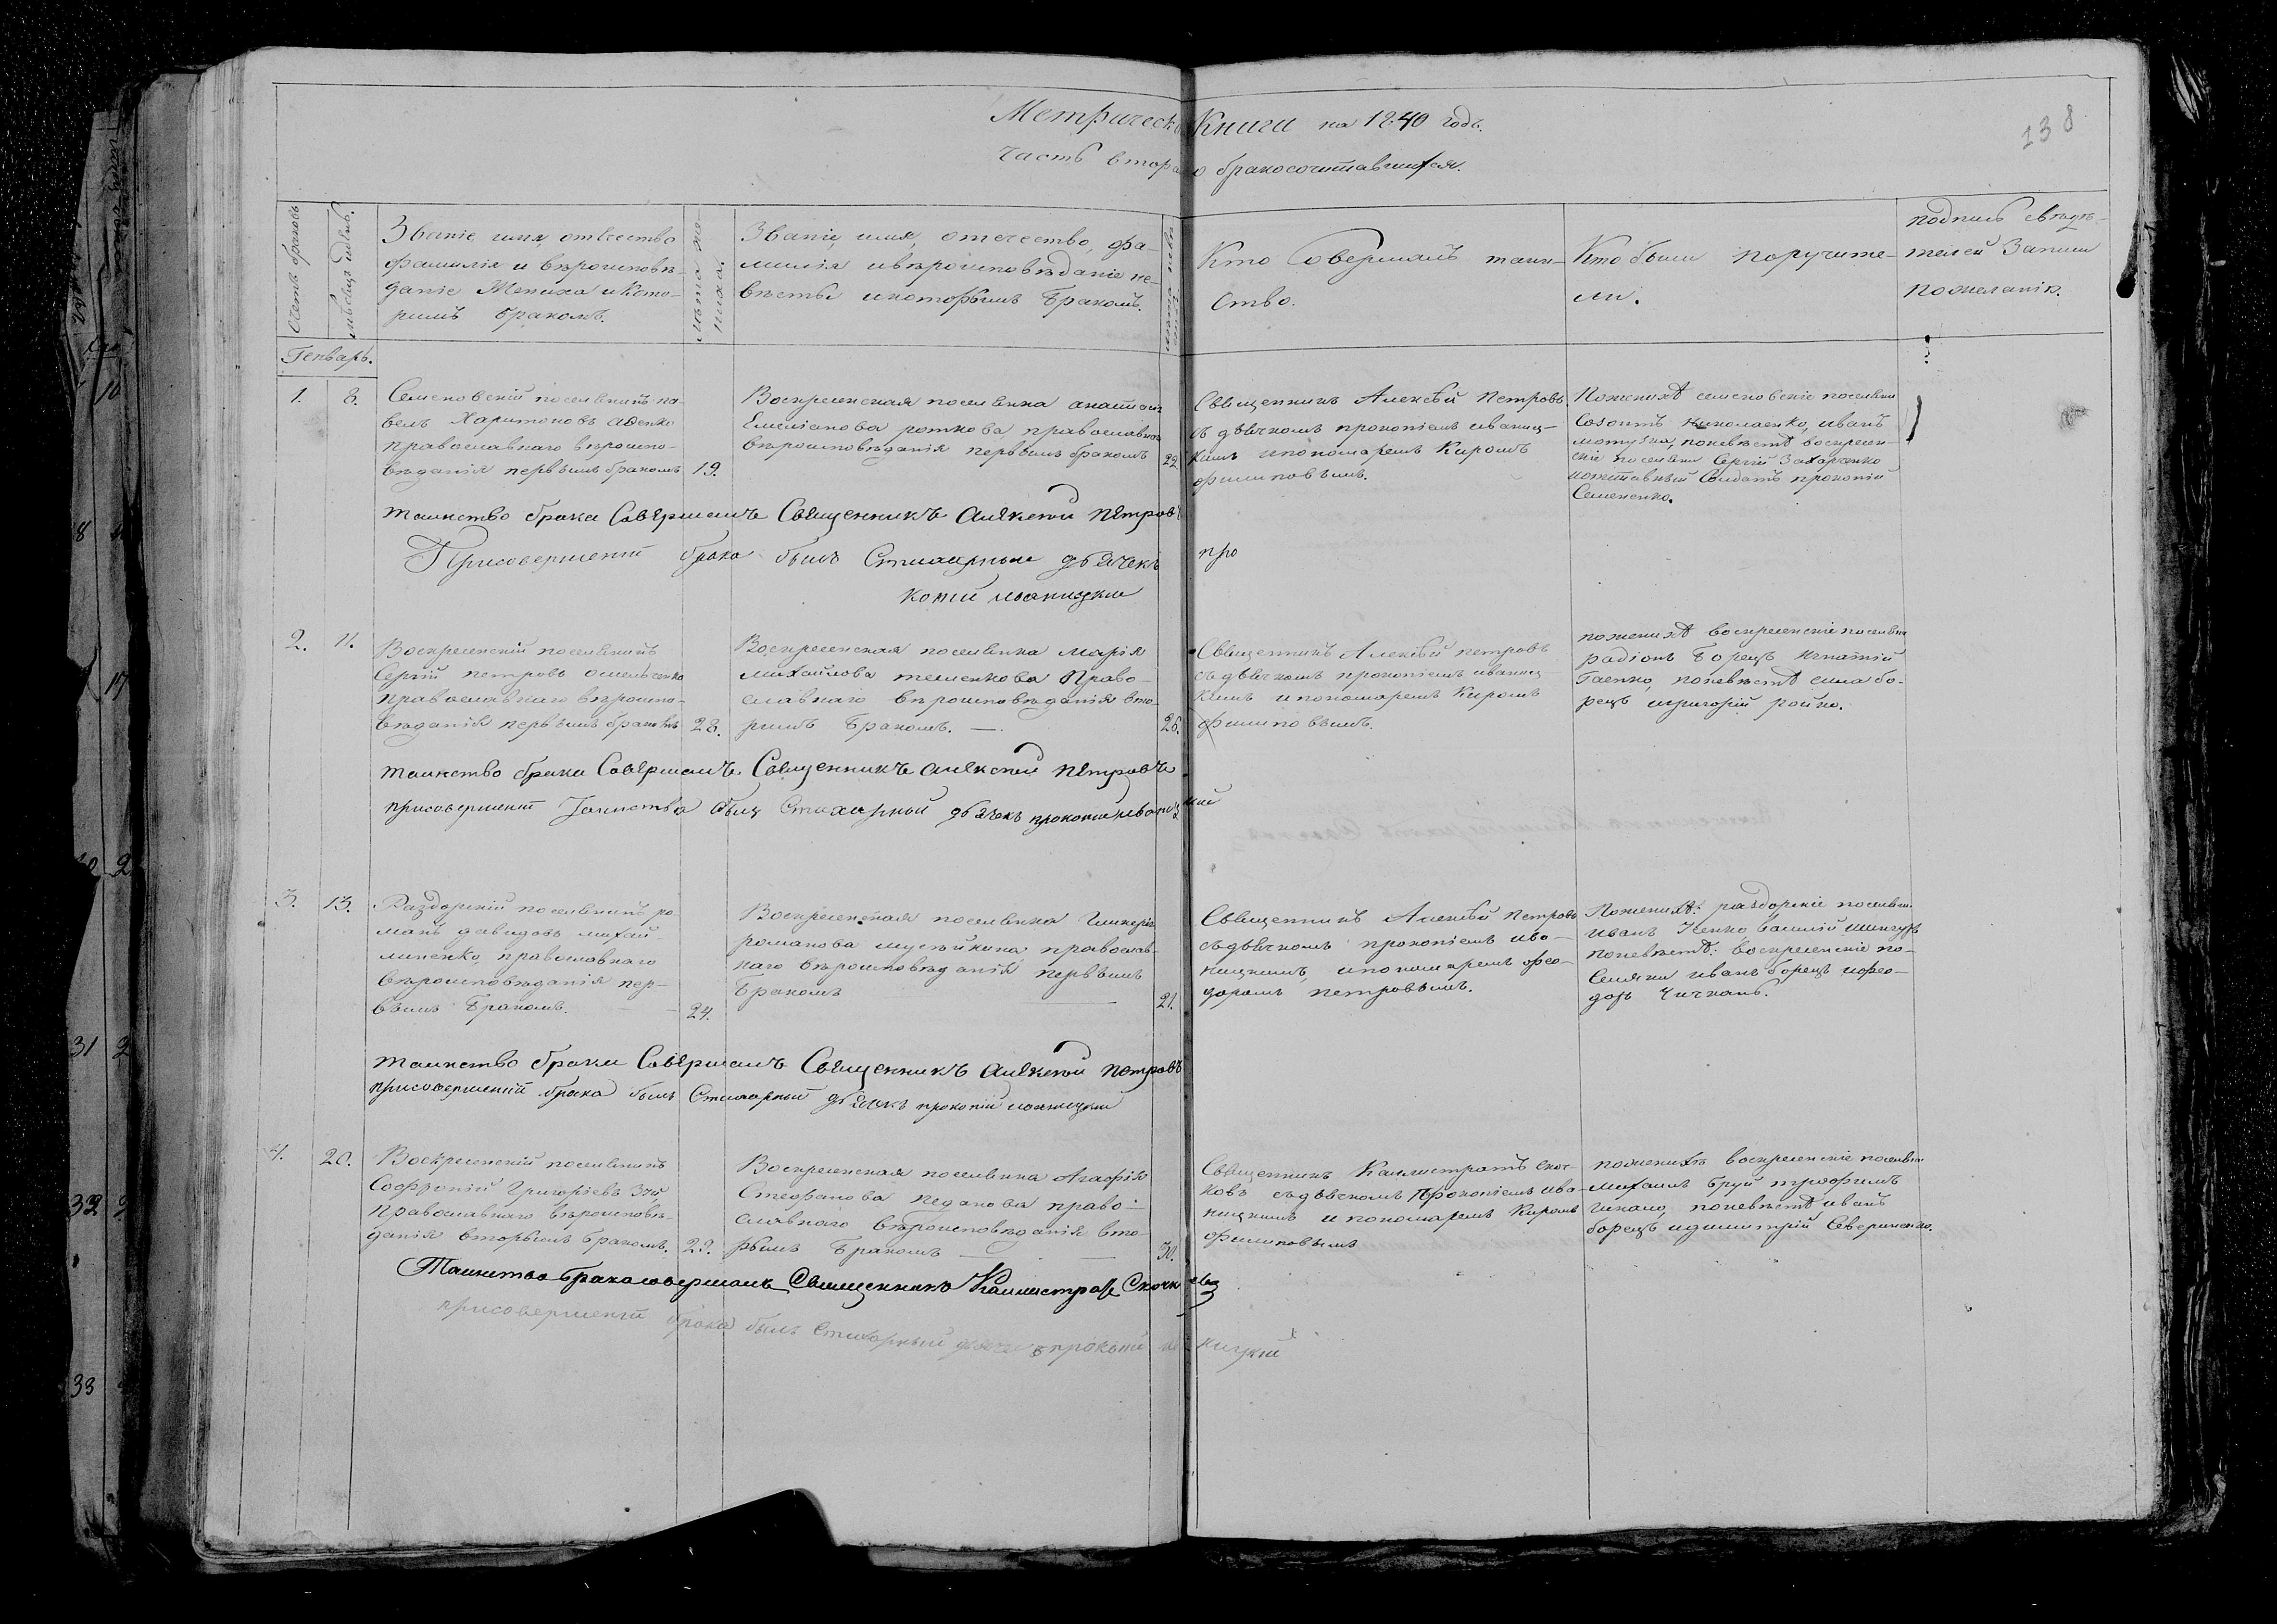 Метрическ Книги на 1840 годъ.
138
Часть втора о бракосочитавшихся.
Счетъ браковъ
Звание, имя, отчество
фамилія и вѣроисповѣ-
даніе Жениха и Кото-
римъ бракомъ.
лѣта же-
ниха.
Званіе, имя, отечество, фа-
милія и вѣроисповѣданіе не-
вѣсты и которымъ бракомъ.
Кто Совершалъ таин-
ство.
Кто были поручите-
ли.
подпись свидѣ-
телей Записи
пожеланію.
Генварь.
1. 8.
Семеновскій поселянинъ па-
велъ Харитоновъ
православнаго вѣроиспо-
вѣданія первымъ бракомъ 19.
Воскресенская поселянка
Емелianова роткова православнаго
вѣроисповѣданія первымъ бракомъ 22
Священникъ Алексѣй Петровъ
съ дьячкомъ прокопіемъ иваниц-
кимъ и пономаремъ Киромъ
филиповымъ.
По женихѣ семеновские поселяни
Созонтъ Николаенко, иванъ
мотузка, по невѣстѣ воскресен-
скіе поселяни Сергій Захарченко
и отставный Солдатъ прокопій
Семененко.
таинство брака Совѣршалъ Свѣщенникъ Алѣксѣй Пѣтровъ
При совершеніи брака былъ Стихарный дьячекъ про
копий иваницкий
2. 11.
Воскресенскій поселянинъ
Сергій петровъ омельченко
православнаго вѣроиспо-
вѣданія первымъ бракомъ 28.
Воскресенская поселянка марія
михайлова теменкова Право-
славнаго вѣроисповѣданія вто-
римъ бракомъ. — 26.
Священникъ Алексѣй петровъ
съ дьячкомъ прокопіемъ иваниц-
кимъ и пономаремъ Киромъ
филиповымъ.
по женихѣ воскресенскіе поселяни
радіонъ борецъ игнатій
Гаенко, по невѣстѣ сила бо-
рецъ и григорій ройко.
таинство брака Совѣршалъ Свѣщенникъ Алѣксѣй Пѣтровъ
при совершеніи Таинства былъ Стихарный дьячекъ прокопий иваницкий
3. 13.
Раздорскій поселянинъ ро-
манъ давидовъ михай-
личенко, православнаго
вѣроисповѣданія пер-
вымъ бракомъ. 24.
Воскресенская поселянка Гликерія
романова мусѣйкина православ-
наго вѣроисповѣданія первымъ
бракомъ 21.
Священникъ Алексѣй Петровъ
съ дьячкомъ прокопіемъ ива-
ницкимъ, и пономаремъ фео-
доромъ петровымъ.
По женихѣ: раздорскіе поселяни
иванъ василій
по невѣстѣ: воскресенскіе по-
селяни иванъ борецъ и фео-
доръ Чичканъ.
таинство брака Совѣршалъ Свѣщенникъ Алѣксѣй Пѣтровъ
при совершеній брака былъ Стихарный дьячекъ прокопій иваницкий
4. 20.
Воскресенскій поселянинъ
Софроній Григоріевъ Зуй
Православнаго вѣроисповѣ-
данія вторымъ бракомъ. 29.
Воскресенская поселянка Агафія
Стефанова педанова право-
славнаго вѣроисповѣданія вто-
рымъ бракомъ 30.
Священникъ Каллистратъ Скоч-
ковъ съ дьячкомъ Прокопіемъ ива-
ницкимъ и пономаремъ Киромъ
филиповымъ
по женихѣ воскресенскіе поселяни
Михаилъ бруй и трофимъ
по невѣстѣ иванъ
борецъ и димитрій Севериненко.
Таинство брака совершалъ Священникъ Каллистратъ Скочковъ
при совершеній брака былъ Стихарный дьячекъ прокопий иваницкий